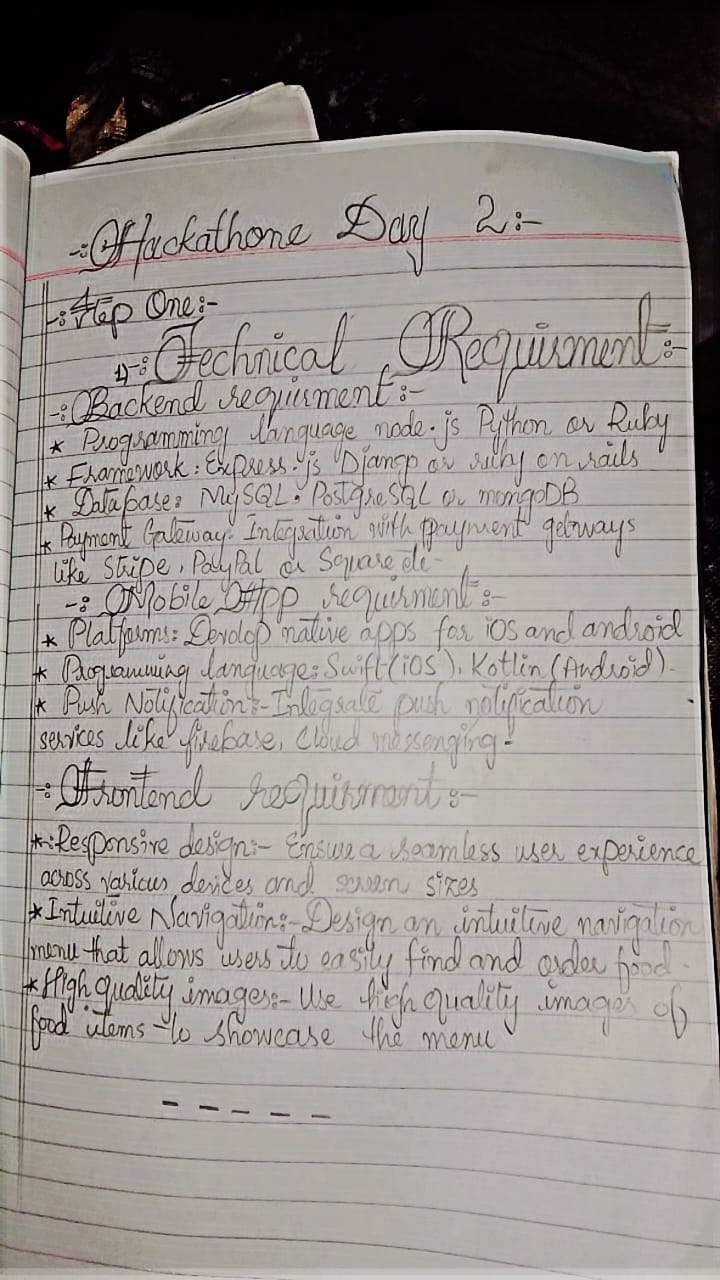 -:Hackathone Day 2:-
-:Step One:-
1)-:Technical Requirment:-
-:Backend requirment:-
* Programming language node.js Python or Ruby
* Framework: Express.js Django or ruby on rails
* Database: MySQL, PostgreSQL or mongoDB
* Payment Gateway: Integration with payment getways
like Stripe, PayPal or Square
-: Mobile App requirment:-
* Platforms: Devolop native apps for iOS and android
* Programming language: Swift (iOS), Kotlin (Android)-
* Push Notification:- Integrate push notification
services like firebase, Cloud messenging-
-: Frontend requirment:-
*:Responsive design:- Ensure a seamless user experience
across various devices and screen sizes
*Intuitive Navigation:- Design an intuitive navigation
menu that allows users to easily find and order food-
*High quality images:- Use high quality images of
food items to showcase the menu